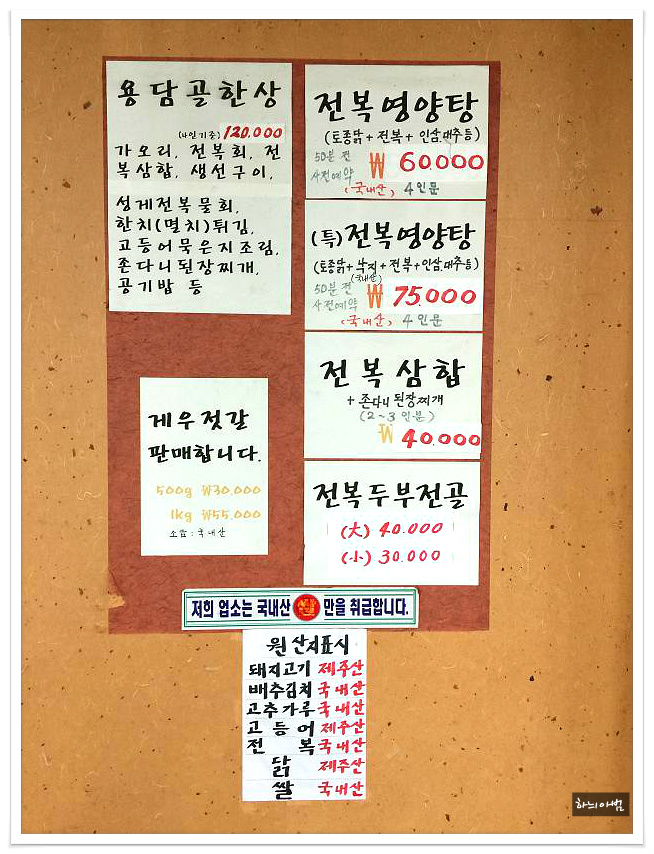 용담골한상
(4인기준) 120.000
가오리, 전복회, 전
복삼합, 생선구이,
성게전복물회,
한치(멸치)튀김,
고등어묵은지조림,
존다니된장찌개,
공기밥 등
전복영양탕
(토종닭+전복+인삼,대추등)
50분 전
사전예약
₩ 60.000
(국내산) 4인분
(특)전복영양탕
(토종닭+낙지+전복+인삼,대추등)
(국내산)
50분 전
사전예약
₩ 75000
(국내산) 4인분
전복삼합
+ 존다니된장찌개
(2~3인분)
₩ 40.000
전복두부전골
(大) 40.000
(小) 30.000
게우젓갈
판매합니다.
500g ₩30.000
1kg ₩55.000
소라:국내산
저희 업소는 국내산 만을 취급합니다.
원산지표시
돼지고기 제주산
배추김치 국내산
고추가루 국내산
고등어 제주산
전복 국내산
닭 제주산
쌀 국내산
하늬아범